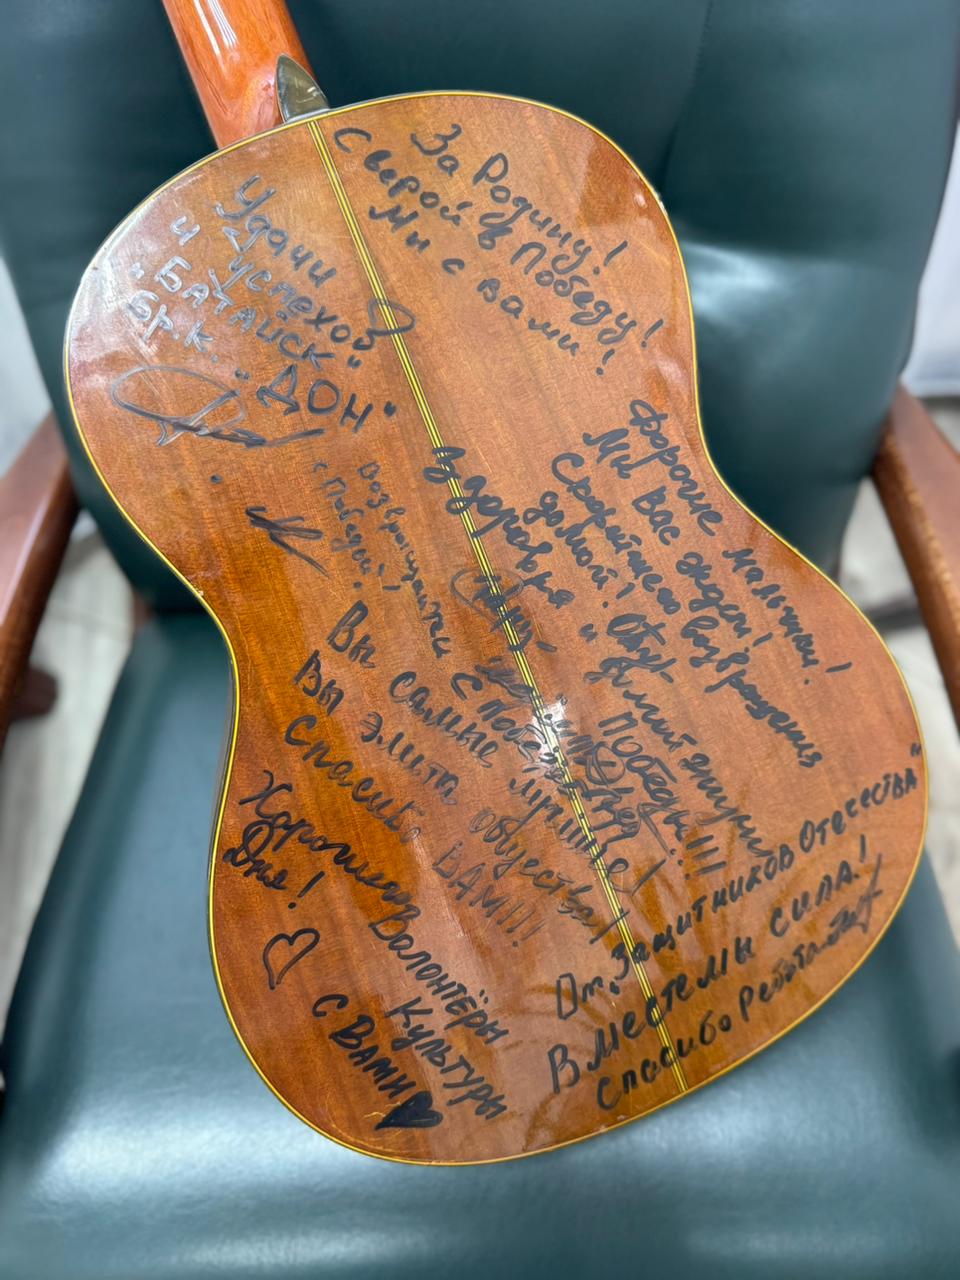 За Родину!
С верой в Победу!
Мы с вами!
Удачи
и успехов
"БАТАЙСК"
БР.К. "ДОН"
Дорогие мальчики!
Мы Вас ждем!
Скорейшего возвращения
домой!
Здоровья
Возвращайтесь с победой
с Победой!
Победы!!!
Вы самые лучшие!
Вы элита общества!
Спасибо ВАМ!!!
Хорошего
Дня!
Волонтёры
Культуры
с Вами
От "Защитников Отечества"
Вместе мы сила!
Спасибо Ребята